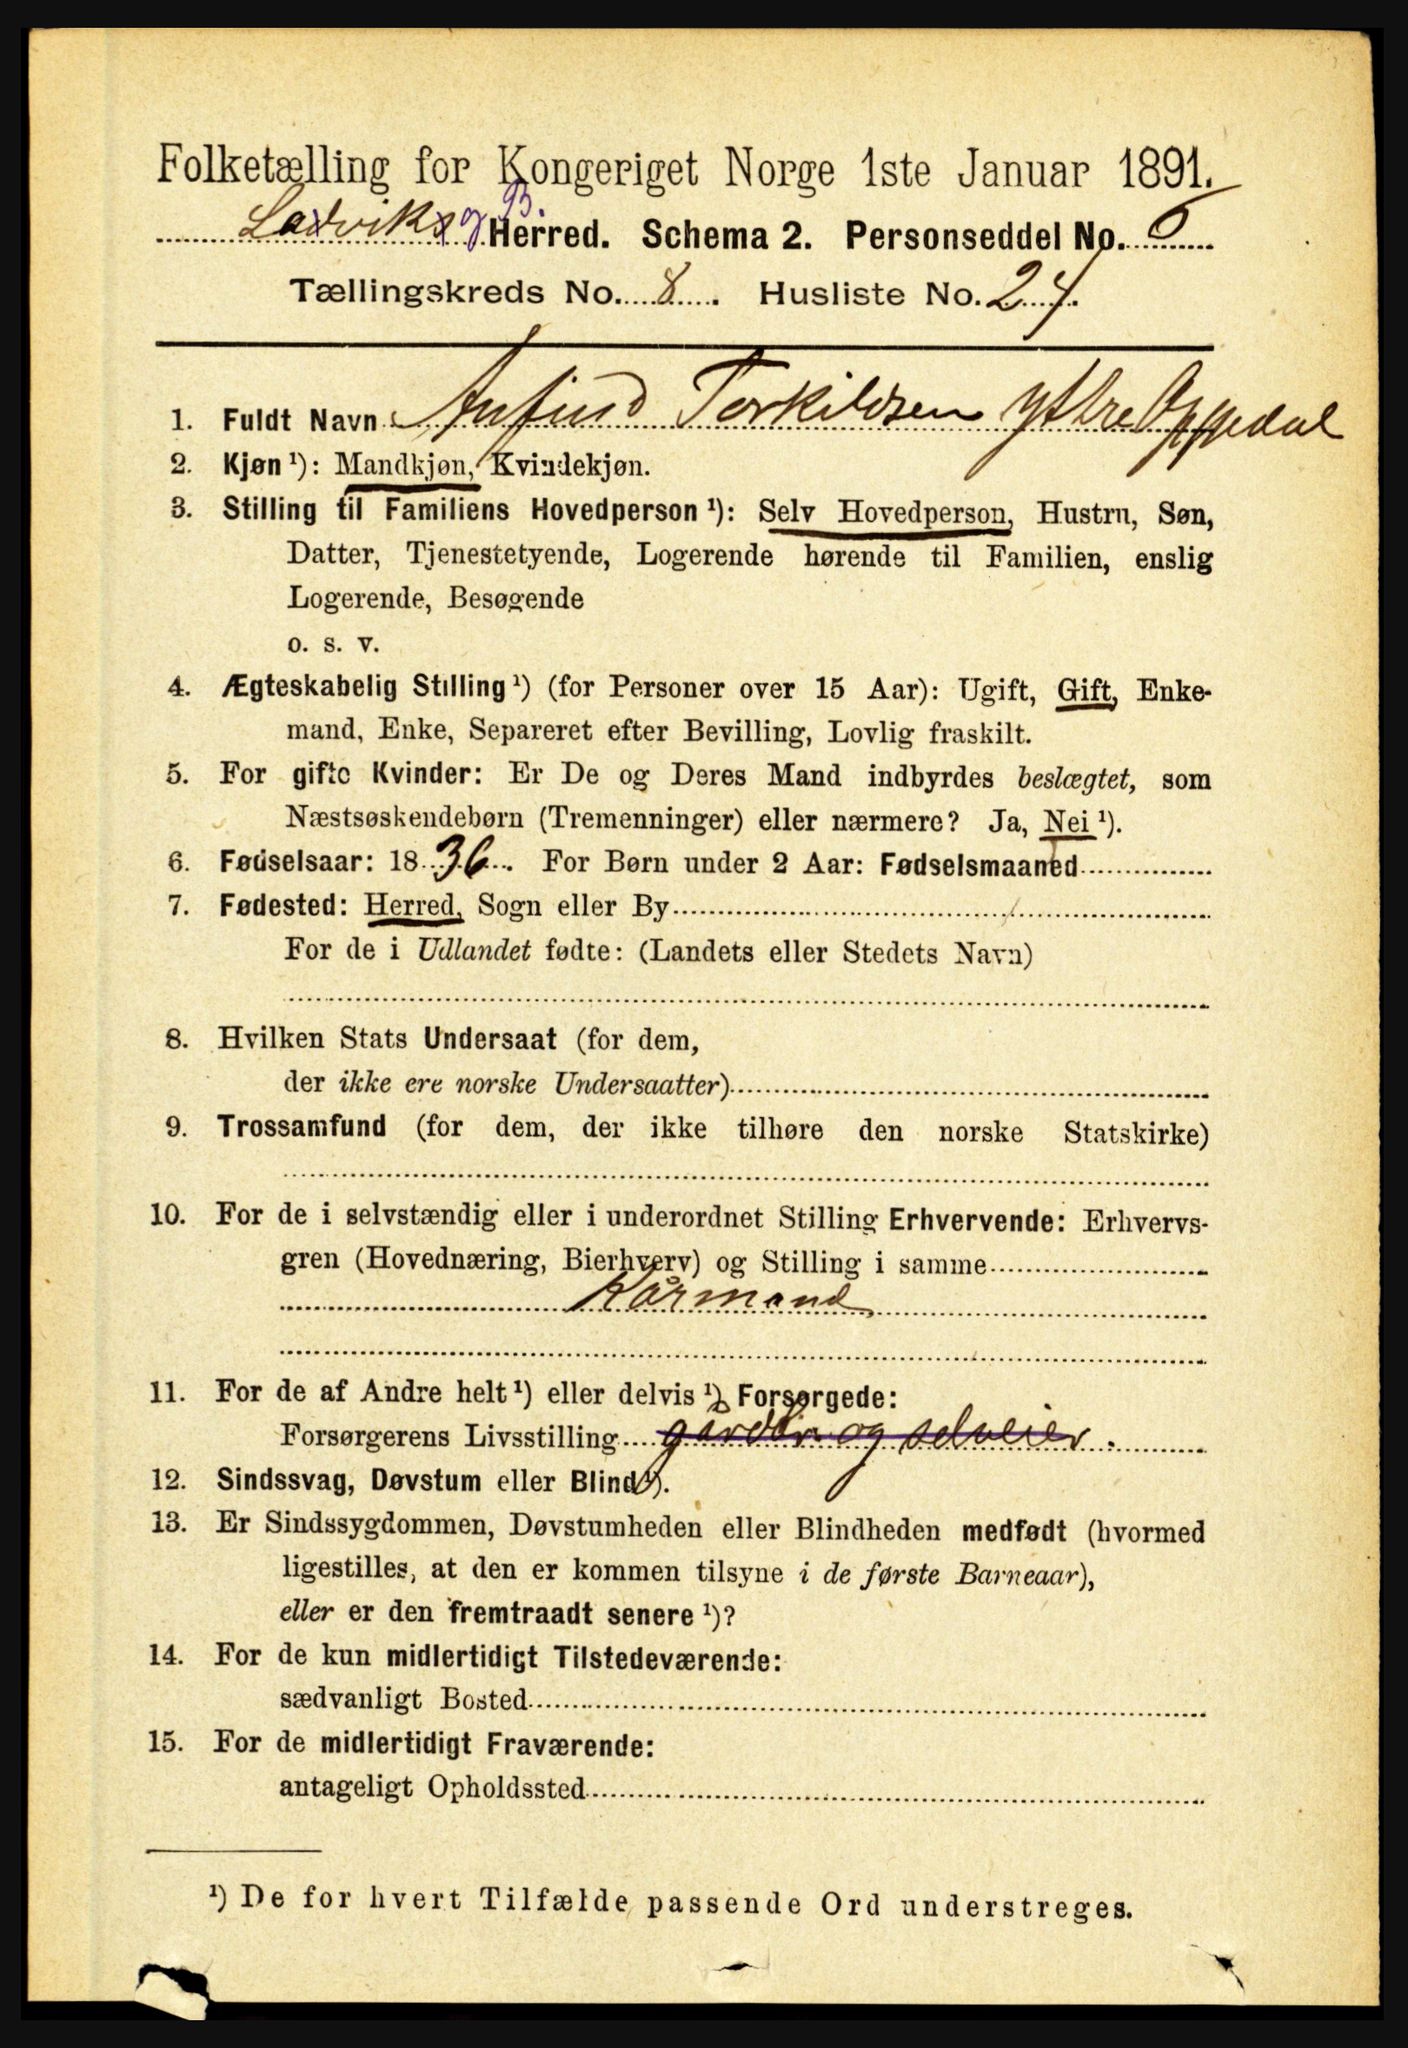 Folketælling for Kongeriget Norge 1ste Januar 1891.
Ladvik og B. Herred. Schema 2. Personseddel No. 6
Tællingskreds No. 8. Husliste No. 24.
1. Fuldt Navn Anfind Torkildsen ytre Oppedal
2. Kjøn ¹): Mandkjøn, Kvindekjøn.
3. Stilling til Familiens Hovedperson ¹): Selv Hovedperson, Hustru, Søn,
Datter, Tjenestetyende, Logerende hørende til Familien, enslig
Logerende, Besøgende
o. s. v.
4. Ægteskabelig Stilling ¹) (for Personer over 15 Aar): Ugift, Gift, Enke-
mand, Enke, Separeret efter Bevilling, Lovlig fraskilt.
5. For gifte Kvinder: Er De og Deres Mand indbyrdes beslægtet, som
Næstsøskendebørn (Tremenninger) eller nærmere? Ja, Nei ¹).
6. Fødselsaar: 1836. For Børn under 2 Aar: Fødselsmaaned
7. Fødested: Herred, Sogn eller By
For de i Udlandet fødte: (Landets eller Stedets Navn)
8. Hvilken Stats Undersaat (for dem,
der ikke ere norske Undersaatter)
9. Trossamfund (for dem, der ikke tilhøre den norske Statskirke)
10. For de i selvstændig eller i underordnet Stilling Erhvervende: Erhvervs-
gren (Hovednæring, Bierhverv) og Stilling i samme
Kårmand
11. For de af Andre helt ¹) eller delvis ¹) Forsørgede:
Forsørgerens Livsstilling gardbr. og selveier.
12. Sindssvag, Døvstum eller Blind ¹).
13. Er Sindssygdommen, Døvstumheden eller Blindheden medfødt (hvormed
ligestilles, at den er kommen tilsyne i de første Barneaar),
eller er den fremtraadt senere ¹)?
14. For de kun midlertidigt Tilstedeværende:
sædvanligt Bosted
15. For de midlertidigt Fraværende:
antageligt Opholdssted
¹) De for hvert Tilfælde passende Ord understreges.